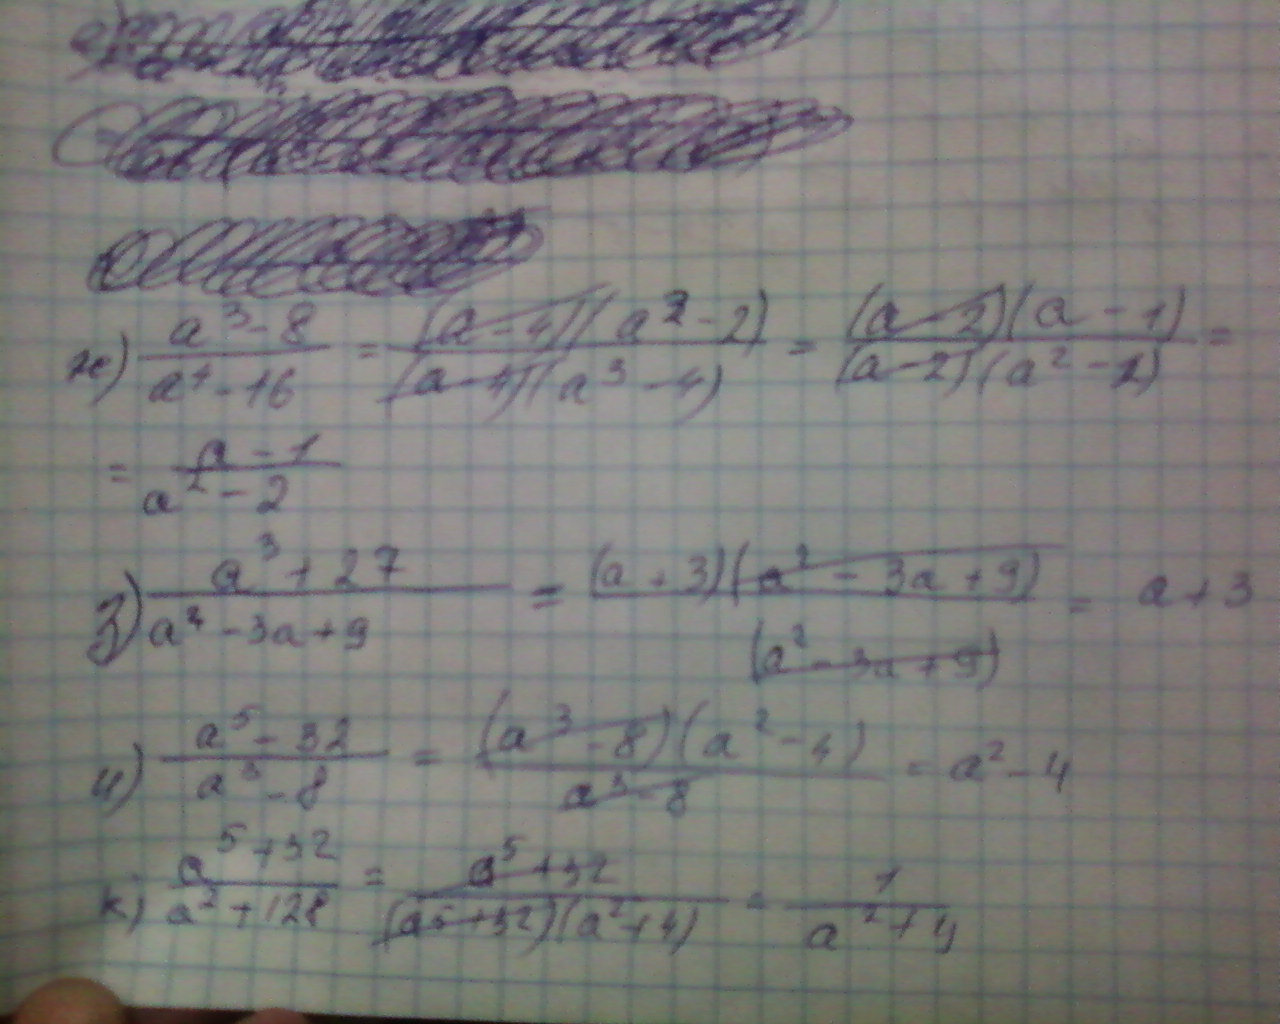 ж) (a³ - 8)/(a⁴ - 16) = ((a - 4)(a² - 2))/((a - 4)(a³ - 4)) = ((a - 2)(a - 1))/((a - 2)(a² - 2)) =
= (a - 1)/(a² - 2)
з) (a³ + 27)/(a² - 3a + 9) = ((a + 3)(a² - 3a + 9))/(a² - 3a + 9) = a + 3
и) (a⁵ - 32)/(a³ - 8) = ((a³ - 8)(a² - 4))/(a³ - 8) = a² - 4
к) (a⁵ + 32)/(a² + 128) = (a⁵ + 32)/((a⁵ + 32)(a² + 4)) = 1/(a² + 4)